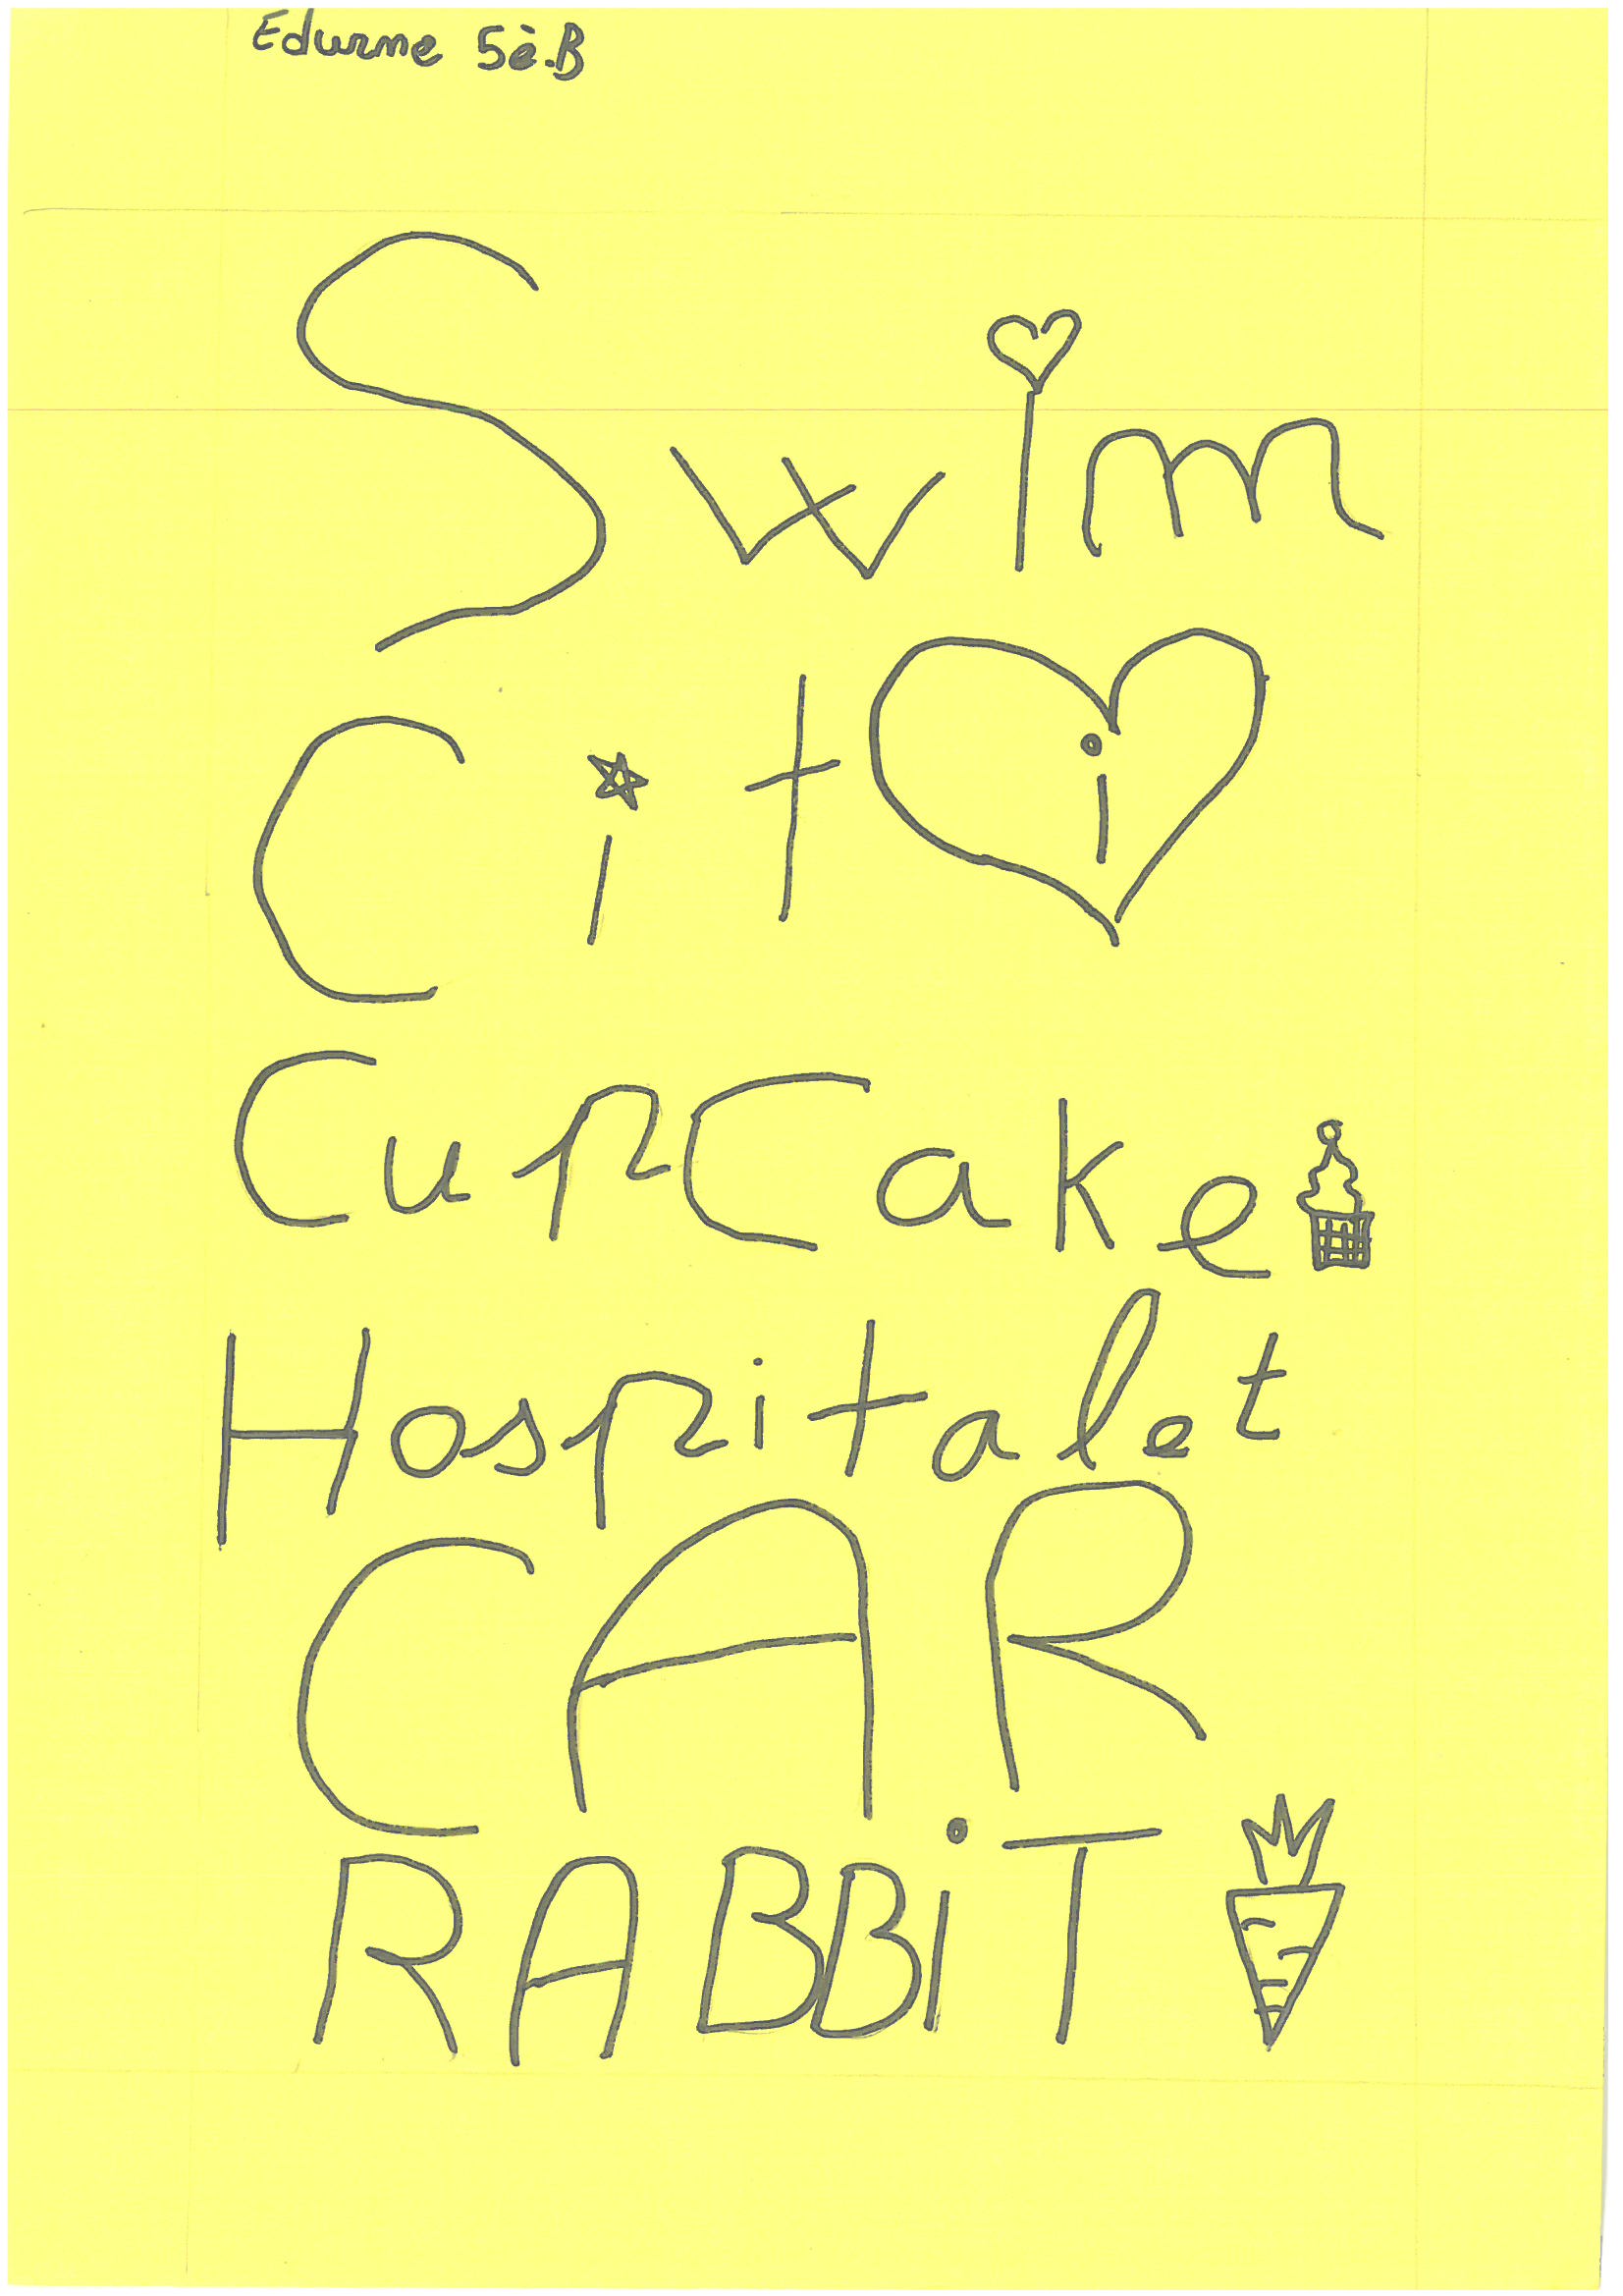 Edurne 5è.B
Swim
Citi
CupCake
Hospitalet
CAR
RABBiT